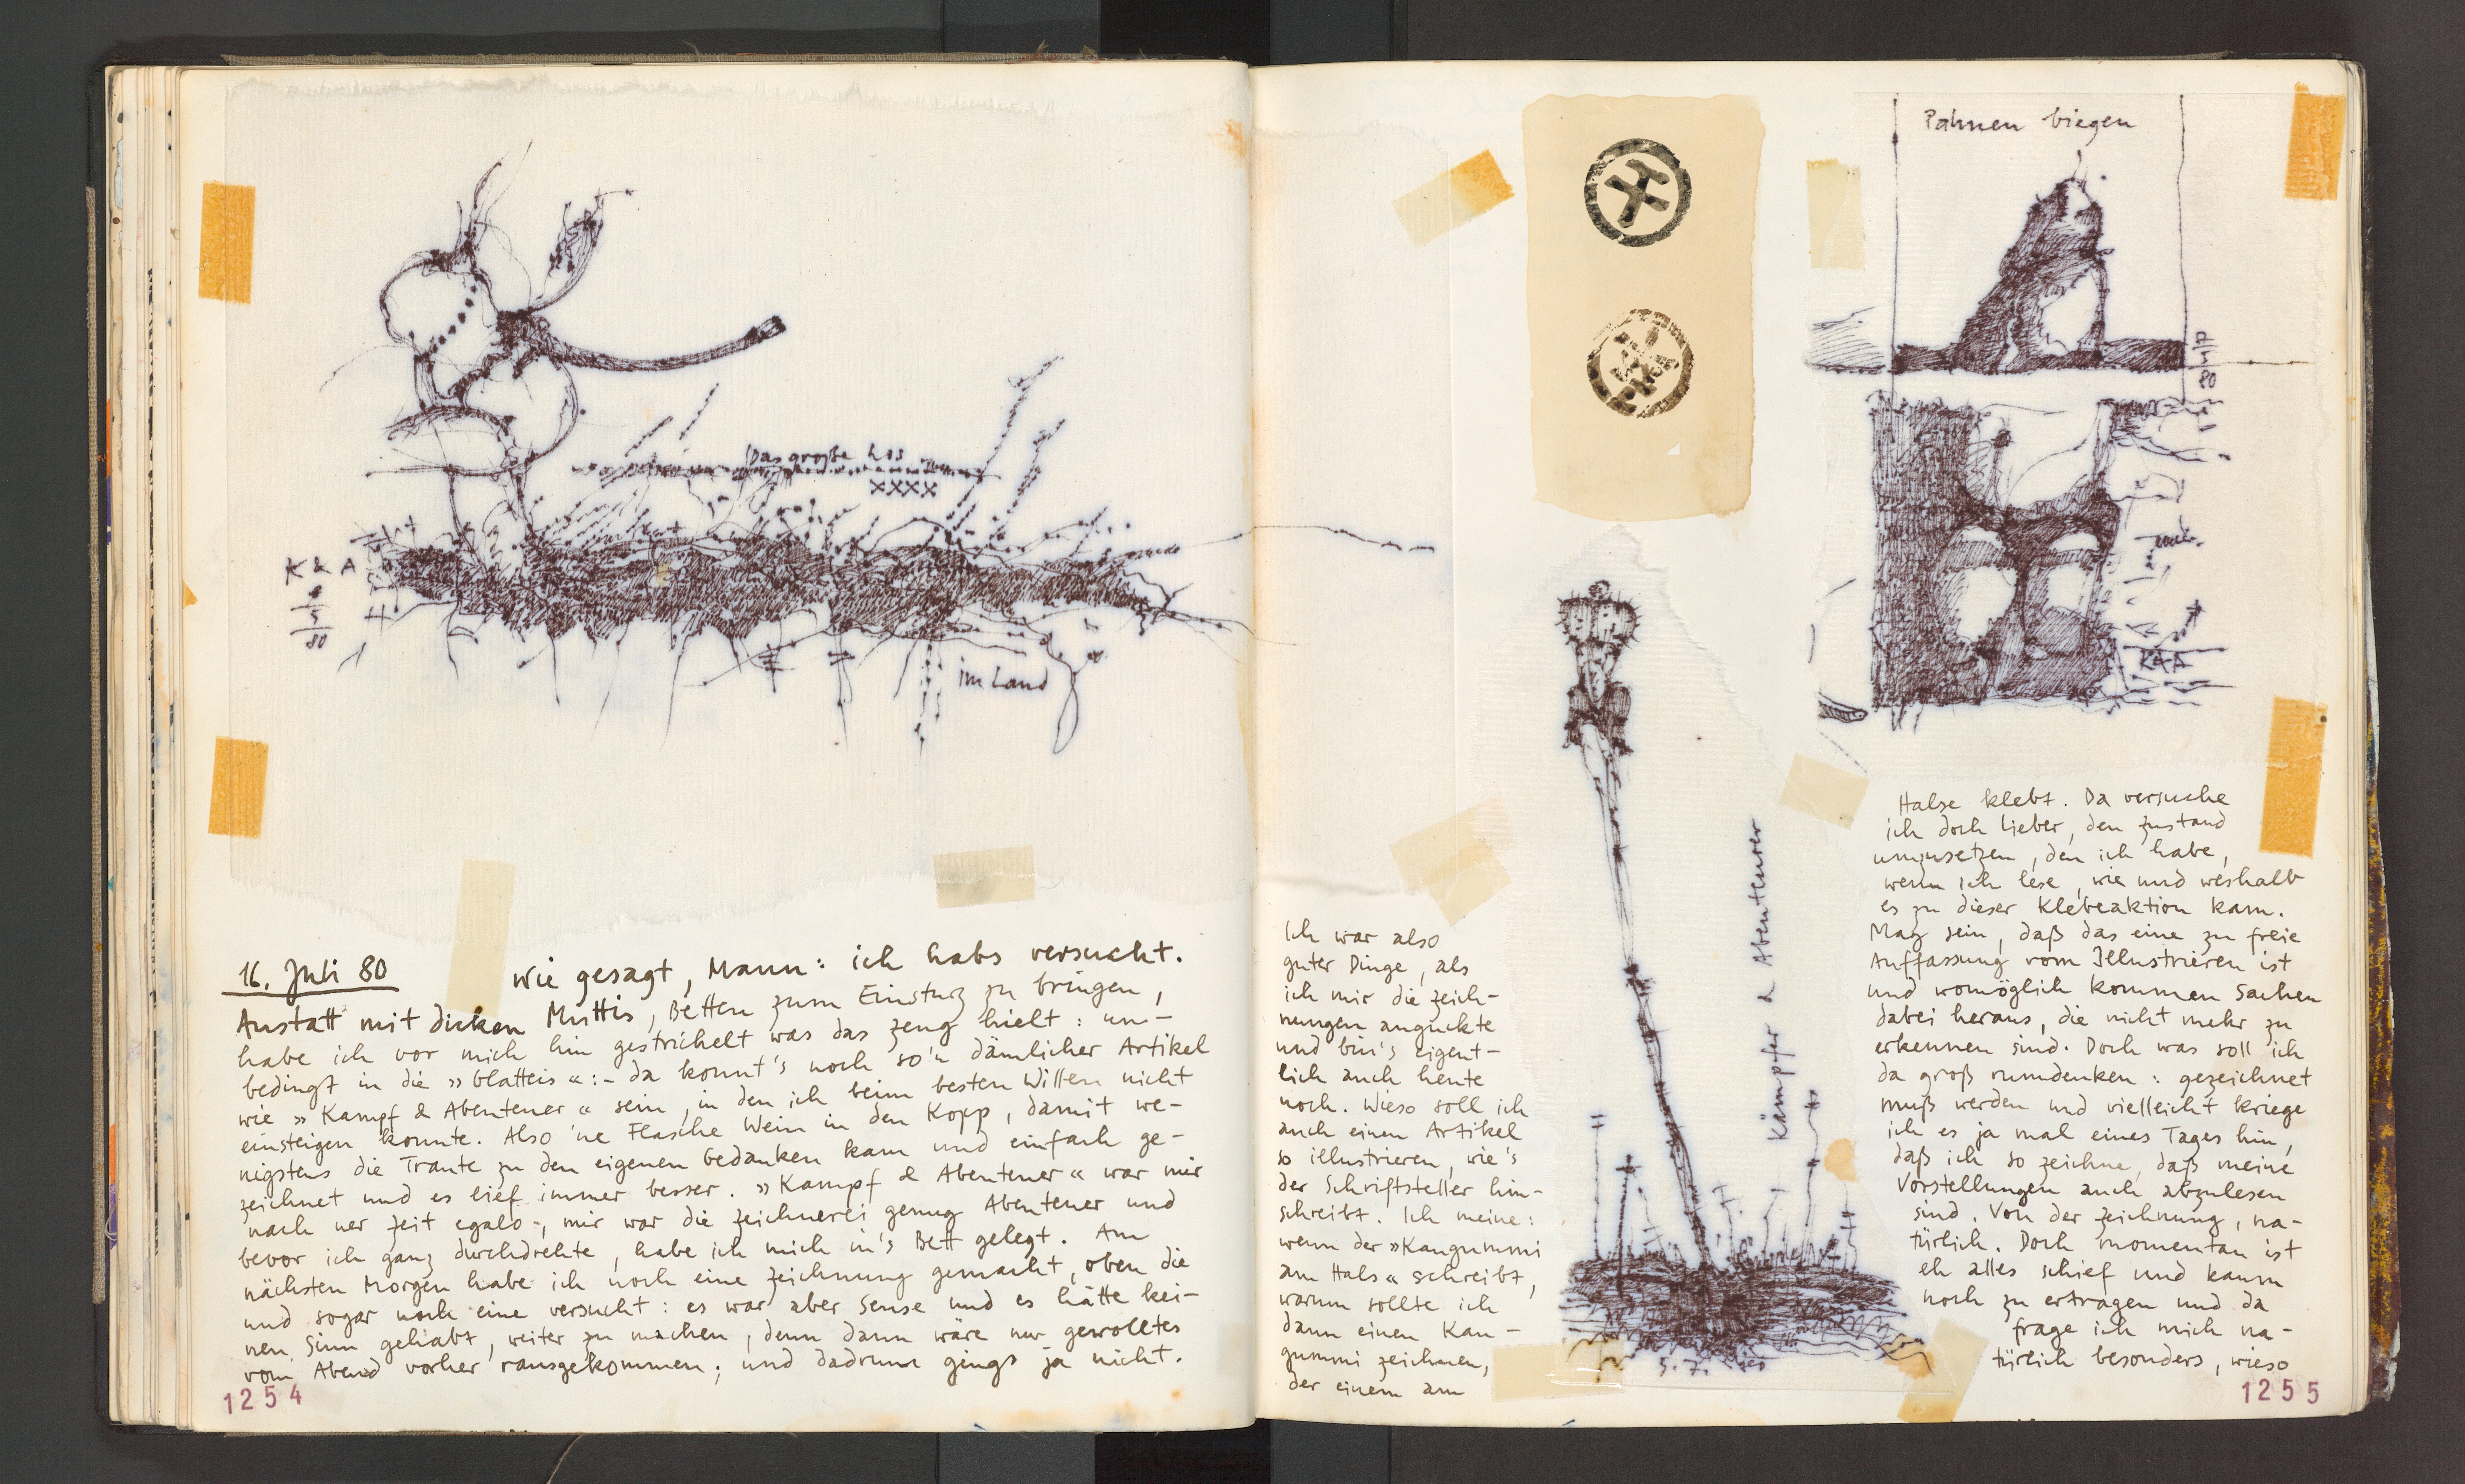 Das große Los
XXXX
K & A
5
80
im Land
16. Juli 80
Wie gesagt, Mann: ich habs versucht.
Anstatt mit dicken Muttis, Betten zum Einsturz zu bringen,
habe ich vor mich hin gestrichelt was das Zeug hielt: un-
bedingt in die »Glatteis«:- da konnt's noch so'n dämlicher Artikel
wie »Kampf & Abenteuer« sein, in den ich beim besten Willen nicht
einsteigen konnte. Also 'ne Flasche Wein in den Kopp, damit we-
nigstens die Traute zu den eigenen Gedanken kam und einfach ge-
zeichnet und es lief immer besser. »Kampf & Abenteuer« war mir
nach ner Zeit egalo-, mir war die Zeichnerei genug Abenteuer und
bevor ich ganz durchdrehte, habe ich mich in's Bett gelegt. Am
nächsten Morgen habe ich noch eine Zeichnung gemacht, oben die
und sogar noch eine versucht: es war aber Sense und es hätte kei-
nen Sinn gehabt, weiter zu machen, denn dann wäre nur gewolltes
vom Abend vorher rausgekommen; und dadrum gings ja nicht.
1254
Ich war also
guter Dinge, als
ich mir die Zeich-
nungen anguckte
und bin's eigent-
lich auch heute
noch. Wieso soll ich
auch einen Artikel
so illustrieren, wie's
der Schriftsteller hin-
schreibt. Ich meine:
wenn der »Kaugummi
am Hals« schreibt,
warum sollte ich
dann einen Kau-
gummi zeichnen,
der einem am
Kämpfer & Abenteurer
5.7.
Pahnen biegen
80
K&A
Halse klebt. Da versuche
ich doch lieber, den Zustand
umzusetzen, den ich habe,
wenn ich lese, wie und weshalb
es zu dieser Klebeaktion kam.
Mag sein, daß das eine zu freie
Auffassung vom Illustrieren ist
und womöglich kommen Sachen
dabei heraus, die nicht mehr zu
erkennen sind. Doch was soll ich
da groß rumdenken: gezeichnet
muß werden und vielleicht kriege
ich es ja mal eines Tages hin,
daß ich so zeichne, daß meine
Vorstellungen auch abzulesen
sind. Von der Zeichnung, na-
türlich. Doch momentan ist
eh alles schief und kaum
noch zu ertragen und da
frage ich mich na-
türlich besonders, wieso
1255